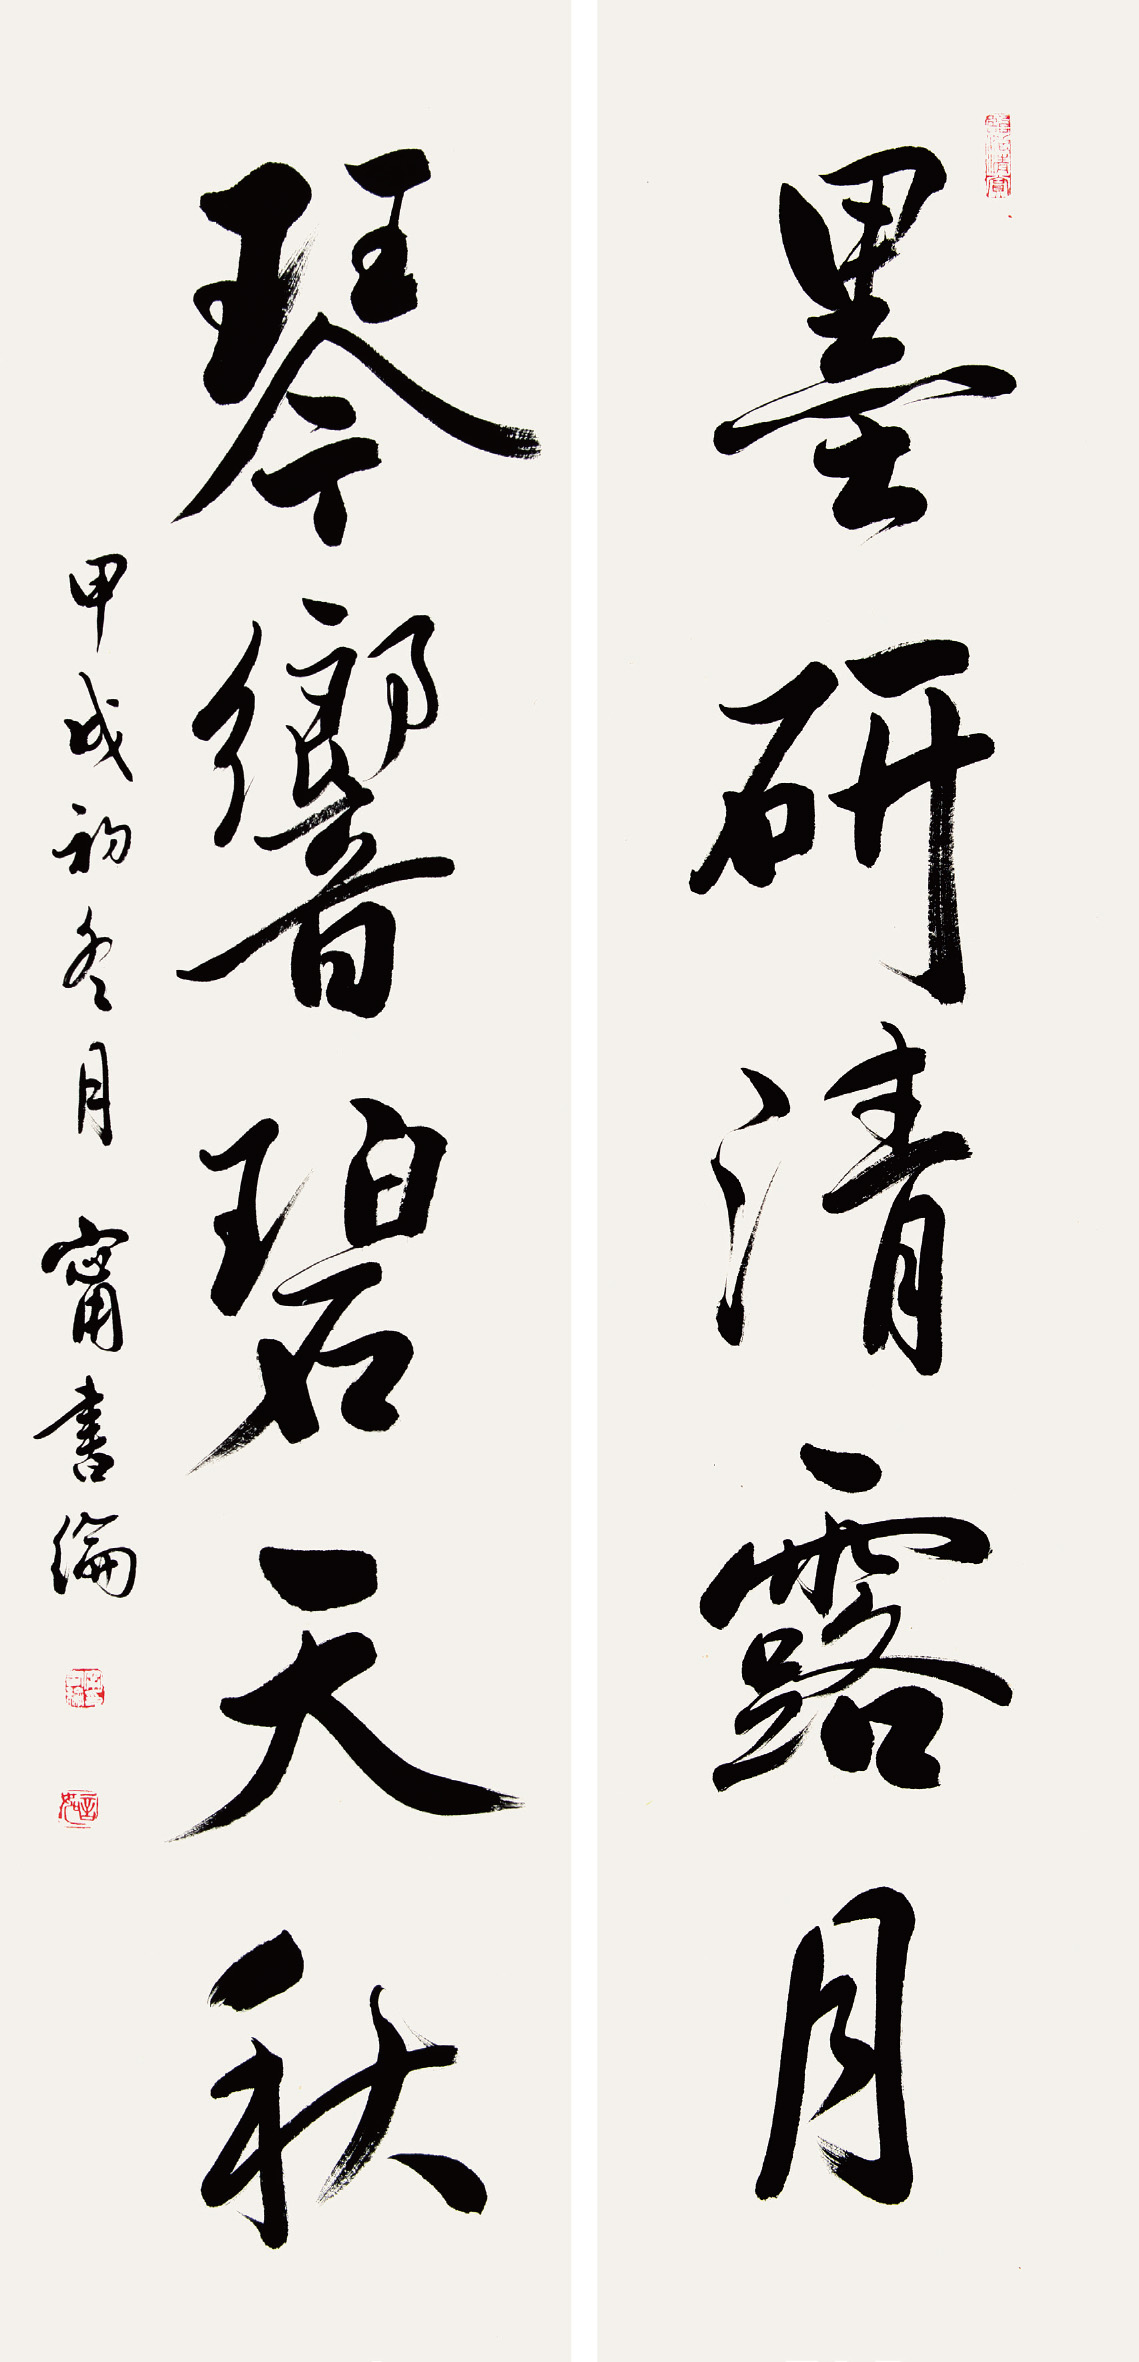 墨研清露月
琴響碧天秋
甲戌初冬月 甯書綸